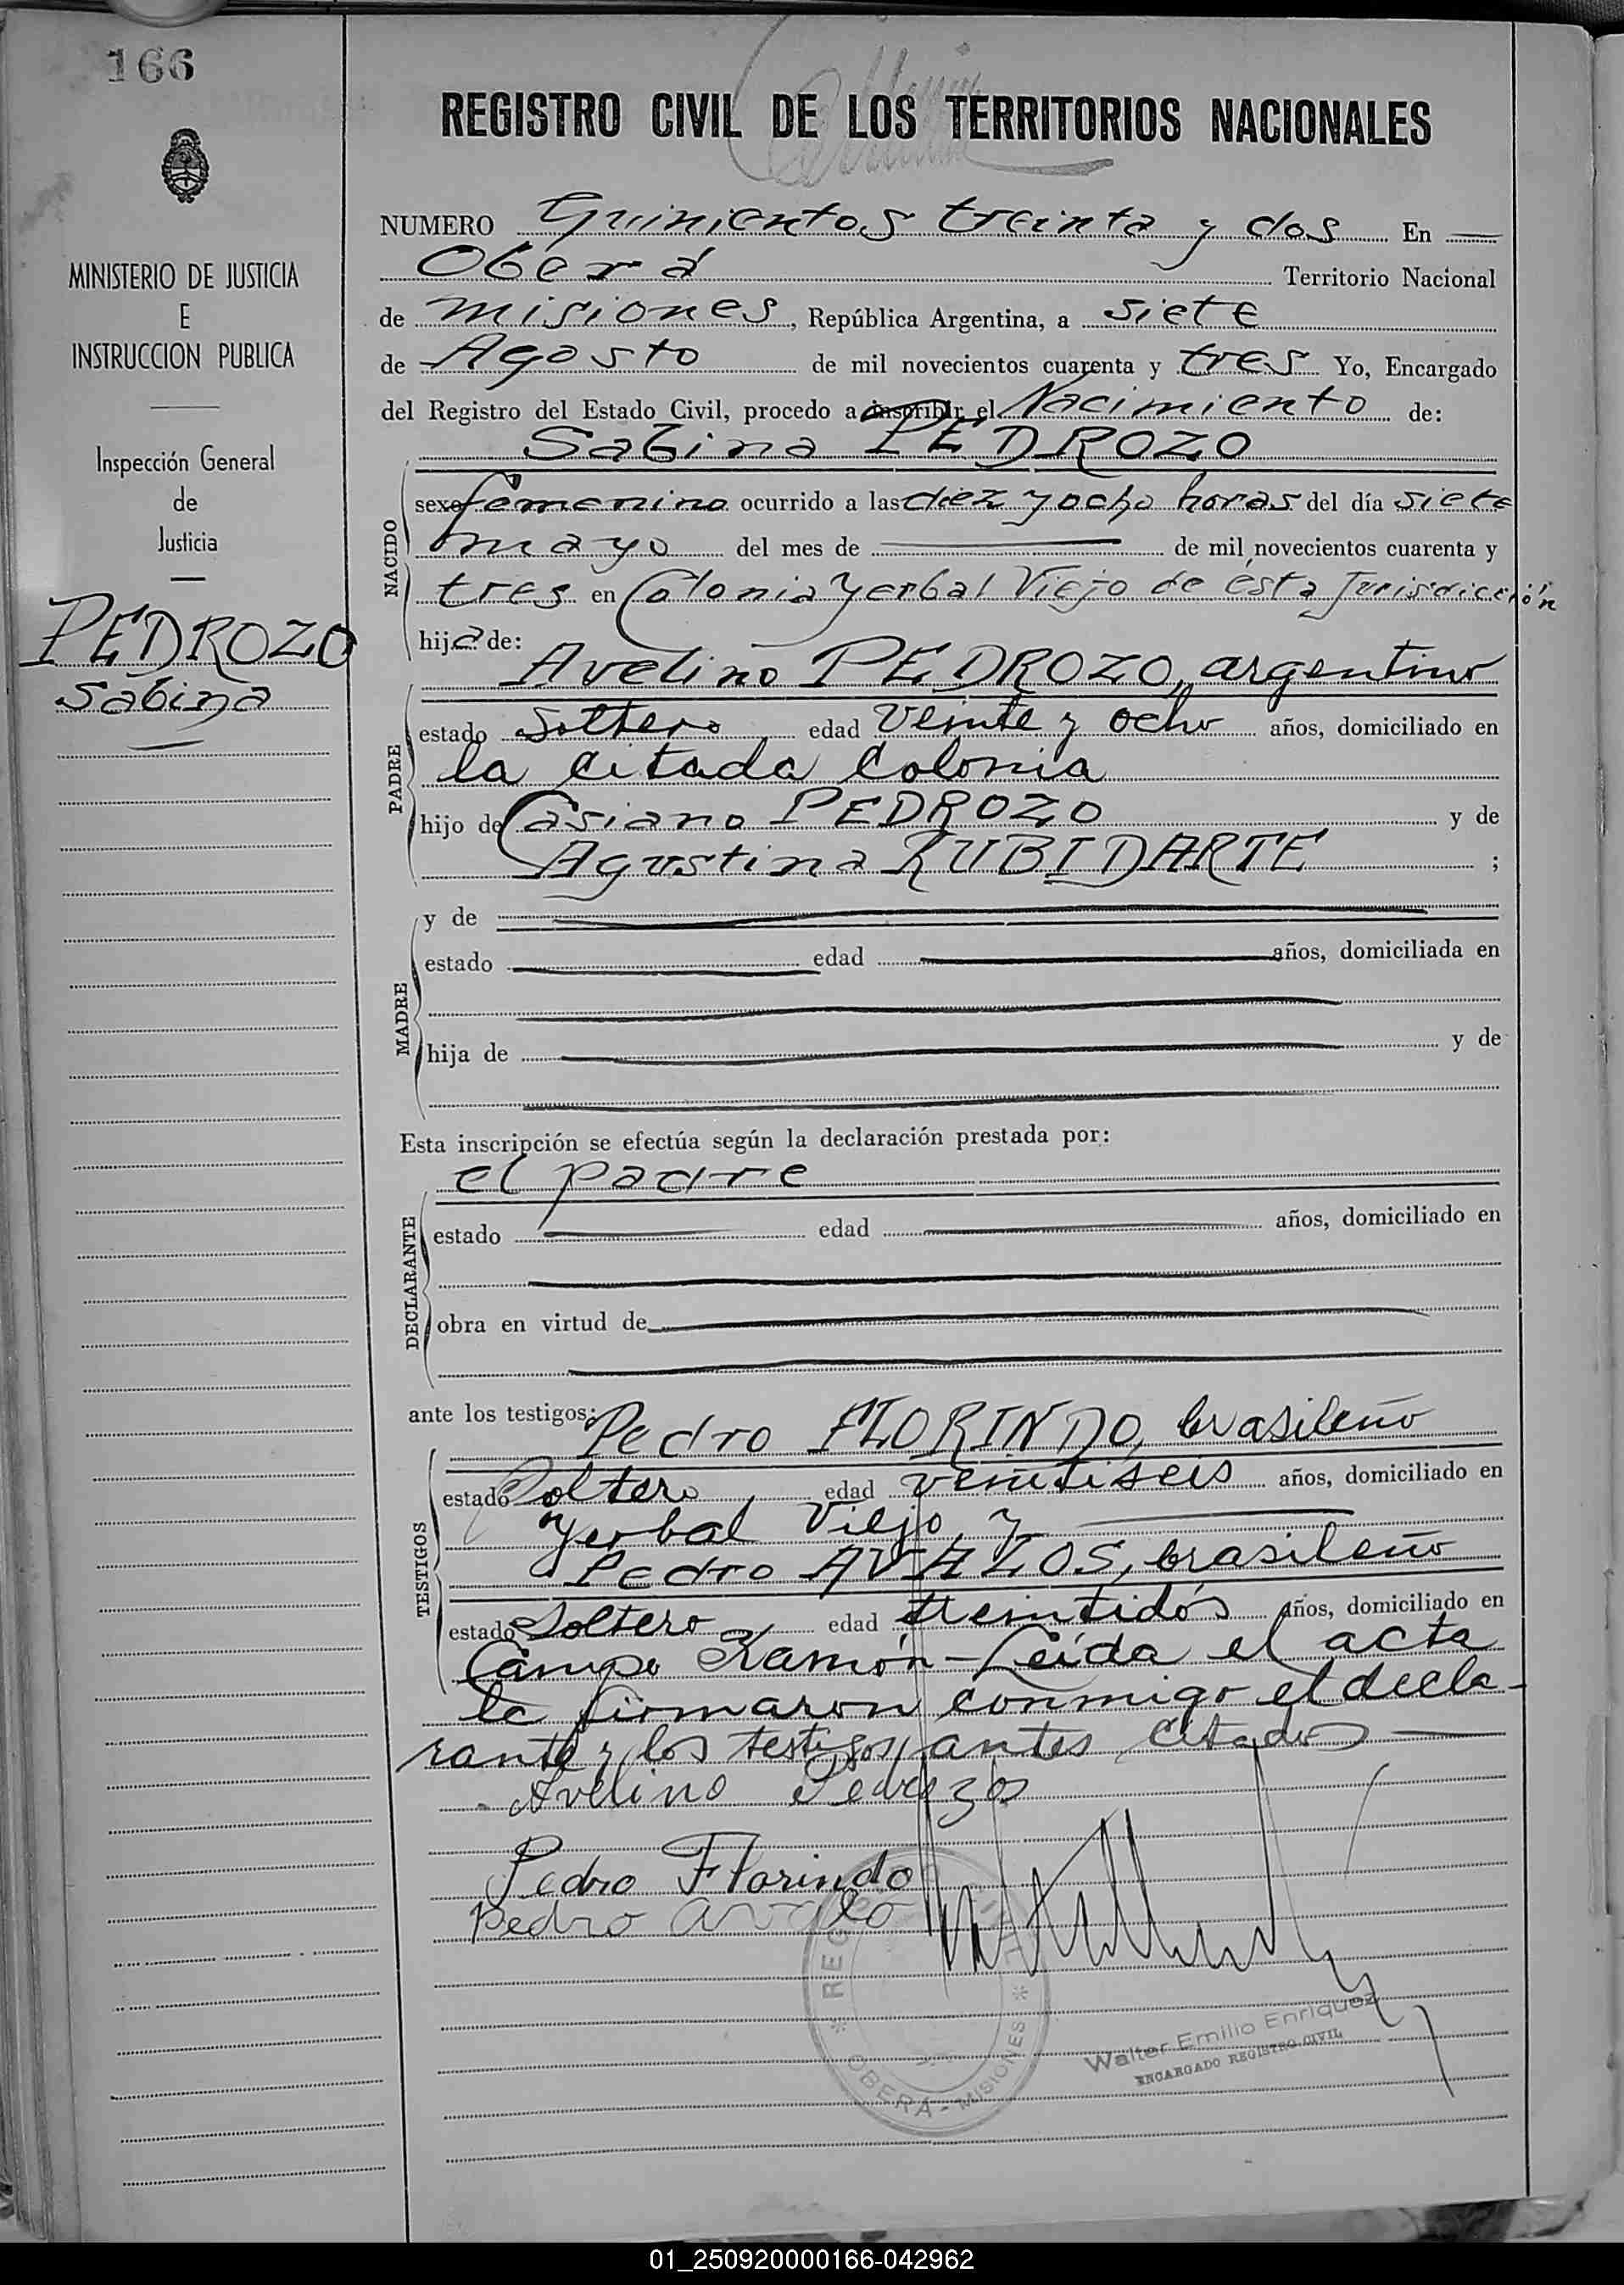 166
MINISTERIO DE JUSTICIA
E
INSTRUCCION PUBLICA
Inspección General
de
Justicia
PEDROZO
Sabina
REGISTRO CIVIL DE LOS TERRITORIOS NACIONALES
NUMERO Quinientos treinta y dos En
Oberá Territorio Nacional
de misiones, República Argentina, a siete
de Agosto de mil novecientos cuarenta y tres Yo, Encargado
del Registro del Estado Civil, procedo a inscribir el Nacimiento de:
Sabina PEDROZO
NACIDO
sexo femenino ocurrido a las diez y ocho horas del día siete
mayo del mes de de mil novecientos cuarenta y
tres en Colonia Yerbal Viejo de ésta Jurisdicción
hija de:
Avelino PEDROZO, argentino
PADRE
estado Soltero edad Veinte y ocho años, domiciliado en
la citada Colonia
hijo de Casiano PEDROZO y de
Agustina RUBIDARTE ;
MADRE
y de
estado edad años, domiciliada en
hija de y de
Esta inscripción se efectúa según la declaración prestada por:
el padre
DECLARANTE
estado edad años, domiciliado en
obra en virtud de
ante los testigos:
Pedro FLORINDO, brasileño
TESTIGOS
estado Soltero edad veintiseis años, domiciliado en
Yerbal Viejo, y
Pedro AVALOS, brasileño
estado Soltero edad treintidós años, domiciliado en
Campo Ramón - Leída el acta
la firmaron conmigo el decla-
rante y los testigos antes citados
Avelino Pedrozo
Pedro Florindo
Pedro avalo
REG
OBERÁ - MISIONES
Walter Emilio Enriquez
ENCARGADO REGISTRO CIVIL
01_250920000166-042962